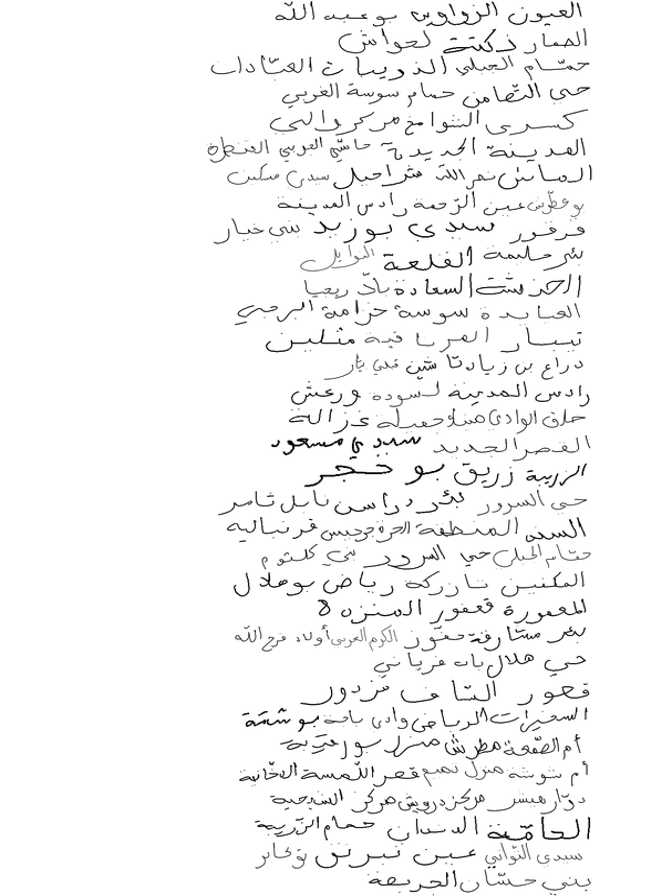 العيون الزواوين بوعبد الله
الصمار دكتة لعواش
حمّام الجبلي الذويبات العبّادات
حي التضامن حمام سوسة الغربي
كسرى الشوامخ مركز والي
المدينة الجديدة 2 حاسّي الفريد القنطرة
البساتين نصر الله سيدي مسكين
بوعطّوش عين الرّحمة رادس المدينة
قرقور سيدي بوزيد بني خيار
بئر حليمة القلعة النوايل
الخزشت السعادة باڨ
العبابدة سوسة خزامة البرجي
تيبار العرباضية متلين
دراع بن زياد تا شين
رادس المدينة لسودة ورغش
حلق الوادي ميناء حفيلة غزالة
القصر الجديد سيدي مسعود
الزريبة زريق بو حجر
حي السرور بئر دراسن نابل ثامر
السند المنطقة الحرة جرجيس قرنبالية
حمّام الجبلي حي السرور بني كلثوم
المكنين تازركة رياض بوهلال
المعمورة قعفور المنزه 8
بئر مشارقة حفّوز الكرم الغربي أولاد فرج الله
حي هلال باب فرياني
قصور السّاف قردون
السعيرات الرياض وادي باجة بوشمّة
أم الصّفحة مطرش منزل بورقيبة
أم شوشة منزل تميم قصر اللمسة الدخّانية
دوّار هيشر مركز درويش مركز الشيحية
الحامّة الدندان حمام الزريبة
سيدي التواتي عين تبرنق بوغابر
بني حسّان الجريصة